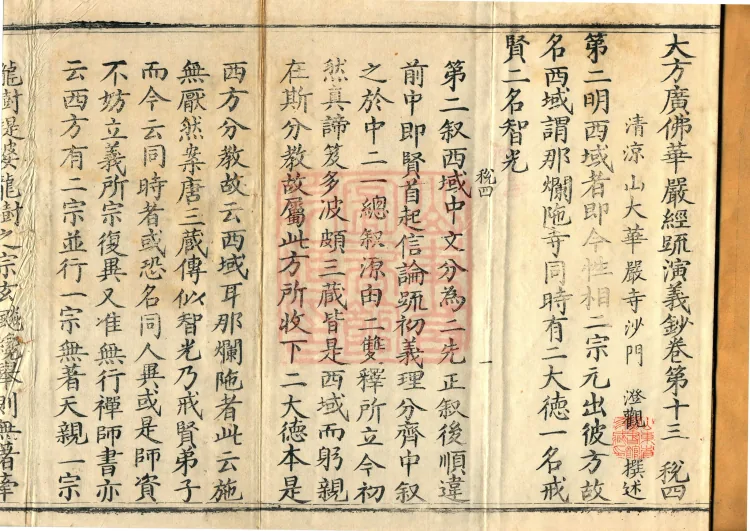 大方廣佛華嚴經䟽演義鈔卷第十三 稅四
清涼山大華嚴寺沙門 澄觀 撰述
第二明西域者即今性相二宗元出彼方故
名西域謂那爛陁寺同時有二大德一名戒
賢二名智光
稅四
一
第二叙西域中文分為二先正叙後順違
前中即賢首起信論䟽初義理分齊中叙
之於中二一總叙源由二雙釋所立今初
然真諦笈多波頗三藏皆是西域而躬親
在斯分教故屬此方所收下二大德本是
西方分教故云西域耳那爛陁者此云施
無厭然案唐三藏傳似智光乃戒賢弟子
而今云同時者或恐名同人異或是師資
不妨立義所宗復異又准無行禪師書亦
云西方有二宗並行一宗無著天親一宗
龍樹提婆龍樹之宗玄則無著